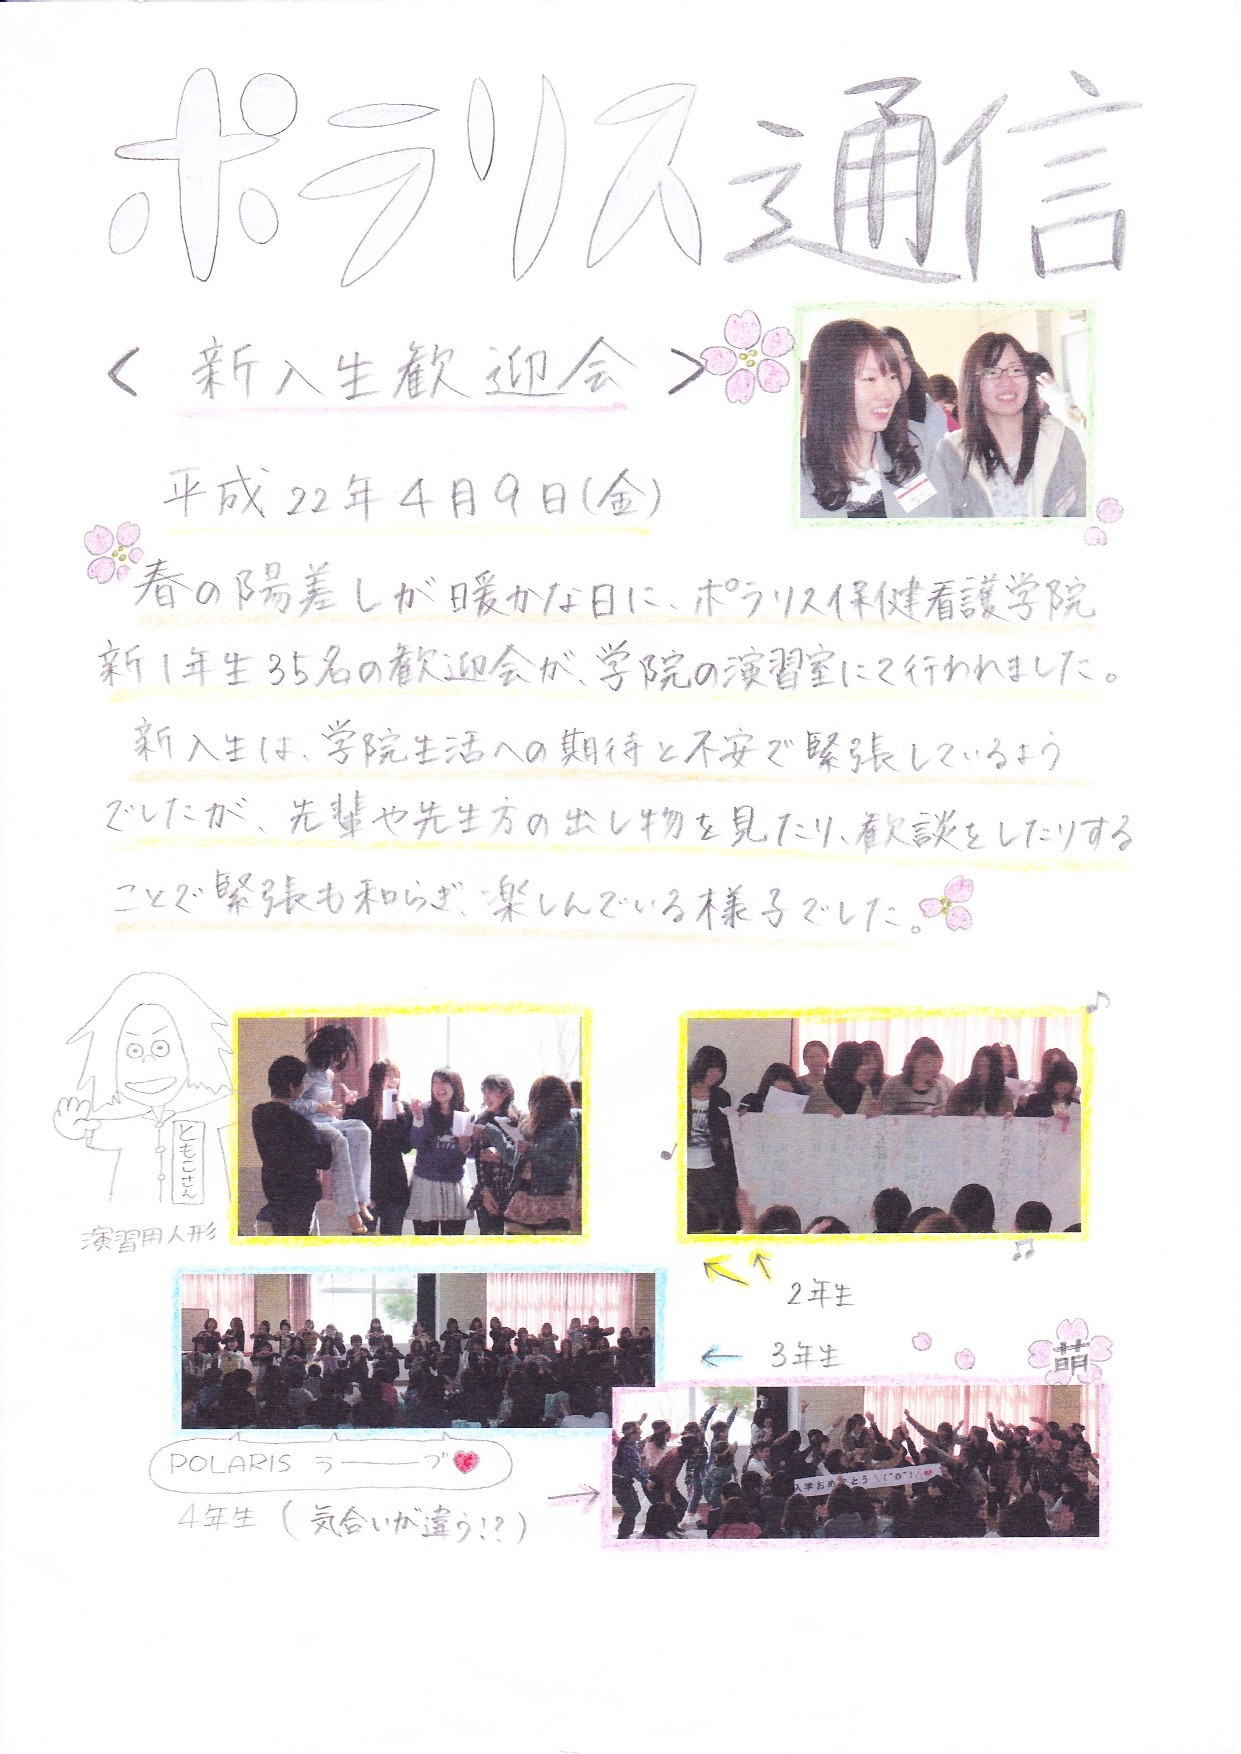 ポラリス通信
< 新入生歓迎会 >
平成22年4月9日(金)
春の陽差しが暖かな日に、ポラリス保健看護学院
新1年生35名の歓迎会が、学院の演習室にて行われました。
新入生は、学院生活への期待と不安で緊張しているよう
でしたが、先輩や先生方の出し物を見たり、歓談をしたりする
ことで緊張も和らぎ、楽しんでいる様子でした。
ともこさん
演習用人形
2年生
3年生
萌
POLARIS ラーーブ
入学おめでとう \(^o^)/
4年生(気合いが違う!?)